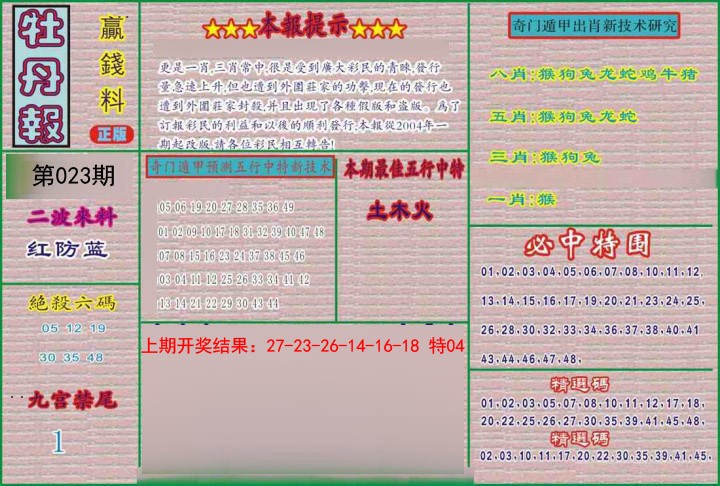 牡丹報
贏錢料
正版
第023期
二波來料
红防蓝
絕殺六碼
05 12 19
30 35 48
九宫禁尾
1
★★★本報提示★★★
更是一肖,三肖常中,很是受到廣大彩民的青睞,發行
量急速上升,但也遭到外圍莊家的功擊,現在的發行也
遭到外圍莊家封殺,并且出現了各種假版和盗版。爲了
訂報彩民的利益和以後的順利發行,本報從2004年一
期起改版,請各位彩民相互轉告!
奇门遁甲预测五行中特新技术
05 06 19 20 27 28 35 36 49
01 02 09 10 17 18 31 32 39 40 47 48
07 08 15 16 23 24 37 38 45 46
03 04 11 12 25 26 33 34 41 42
13 14 21 22 29 30 43 44
本期最佳五行中特
土木火
上期开奖结果：27-23-26-14-16-18 特04
奇门遁甲出肖新技术研究
八肖:猴狗兔龙蛇鸡牛猪
五肖:猴狗兔龙蛇
三肖:猴狗兔
一肖:猴
必中特围
01,02,03,04,05,06,07,08,10,11,12,
13,14,15,16,17,19,20,21,23,24,25,
26,28,30,32,33,34,36,37,38,40,41
43,44,46,47,48,
精選码
01,02,03,05,07,08,10,11,12,17,18,
20,22,25,26,27,30,35,39,41,45,48,
精選码
02,03,10,11,17,20,22,30,35,39,41,45,